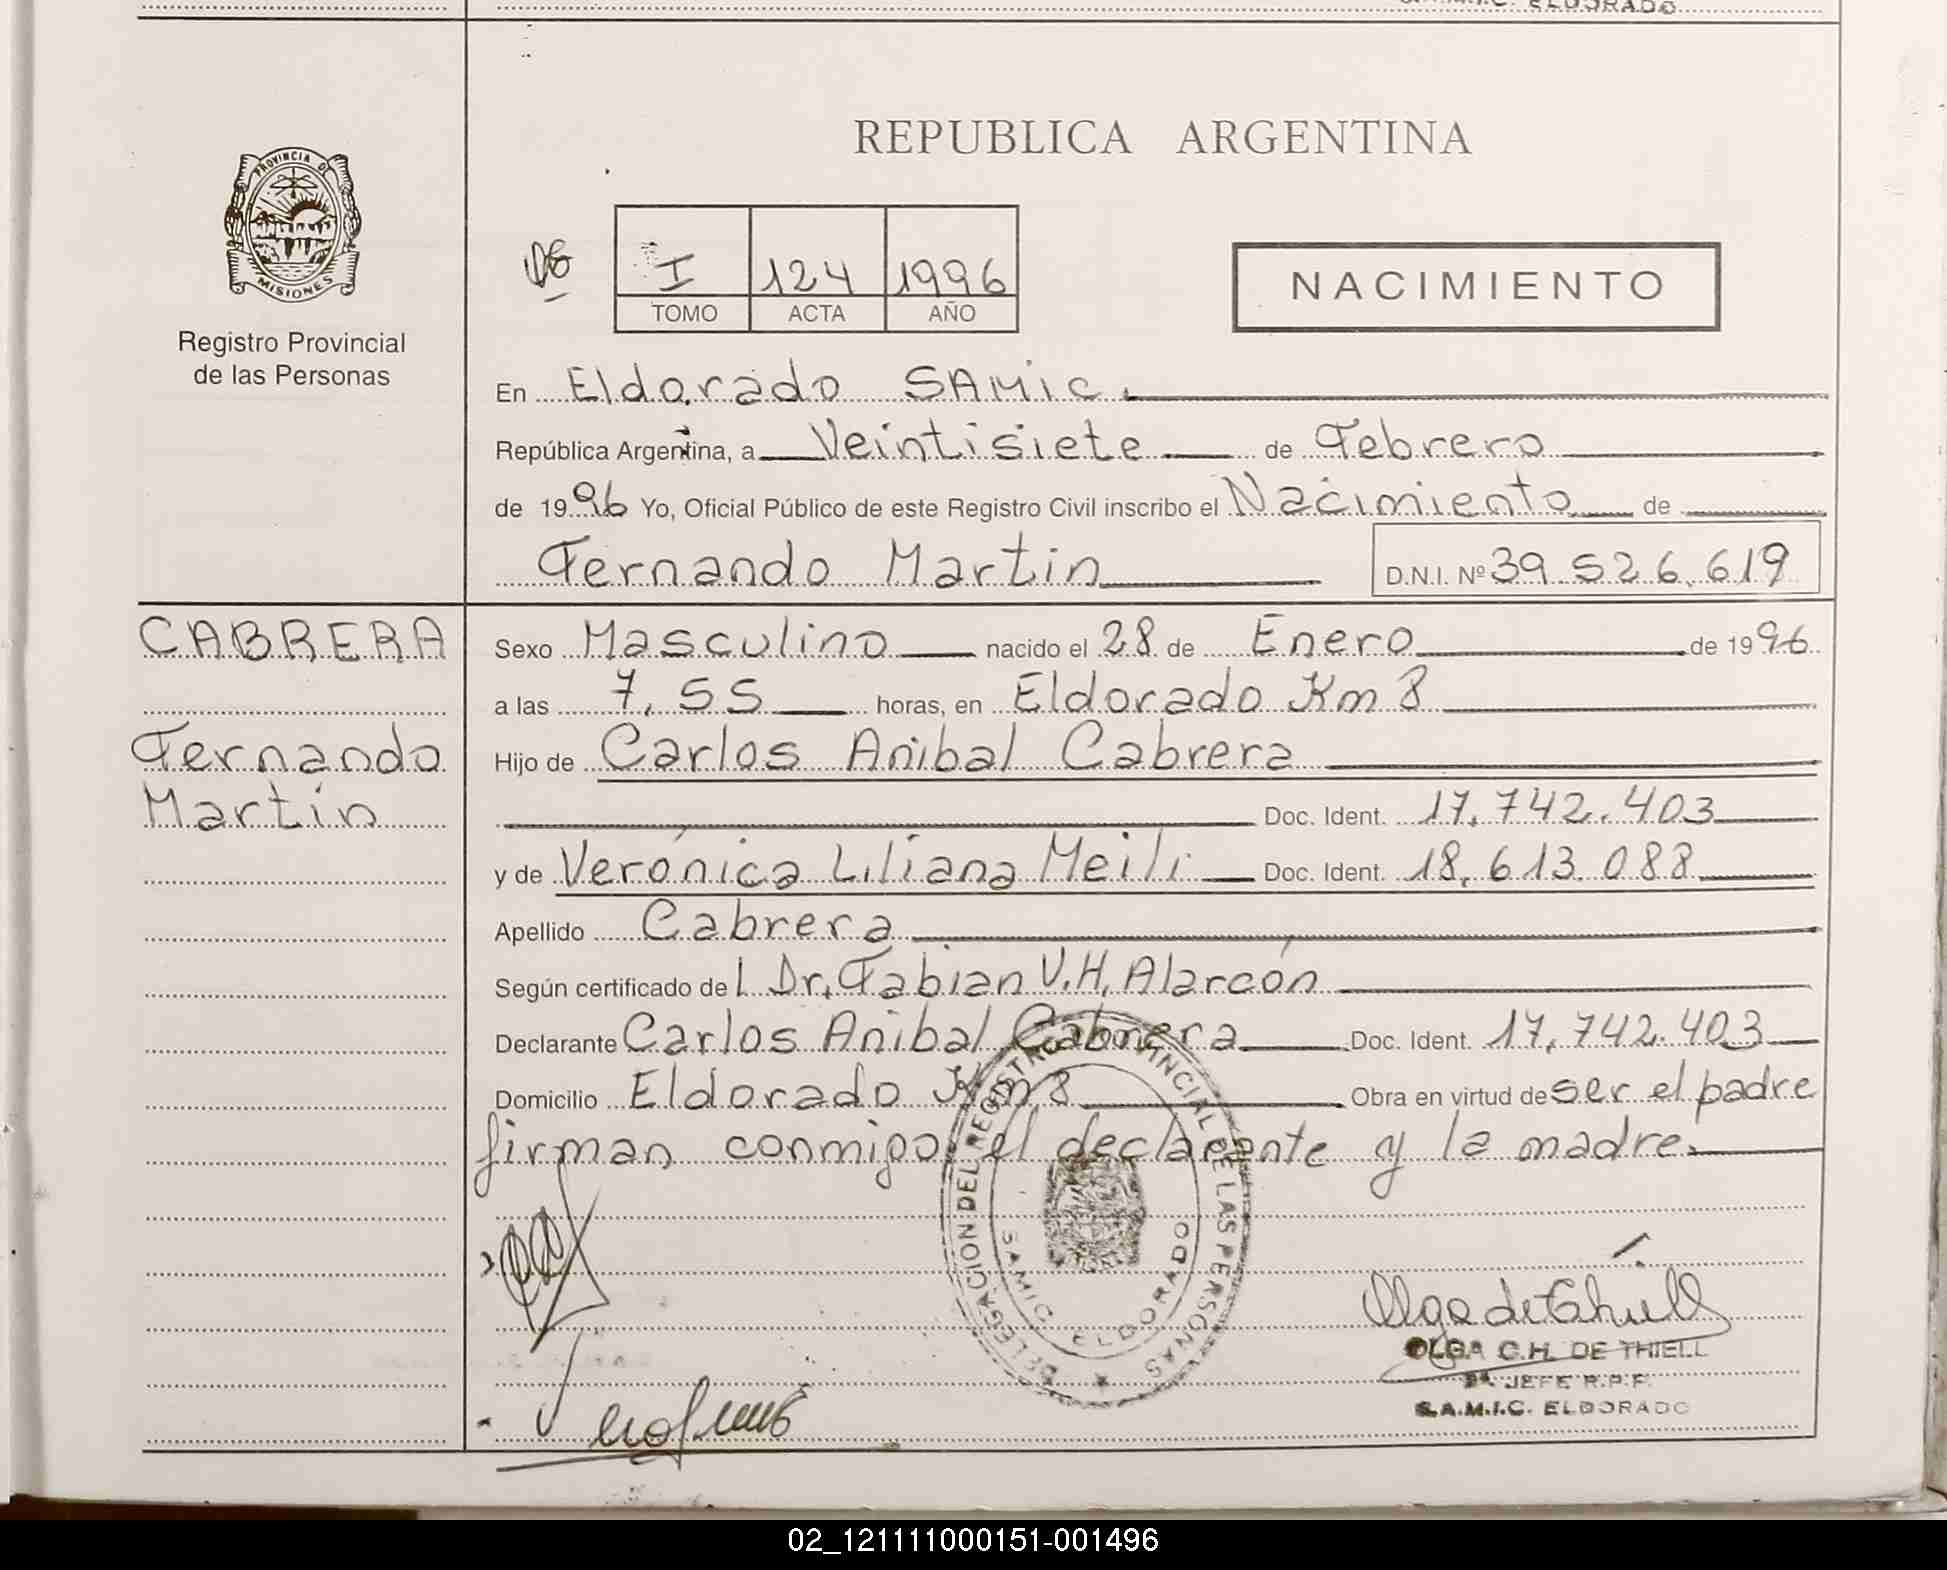 S.A.M.I.C. ELDORADO
REPUBLICA ARGENTINA
PROVINCIA DE
MISIONES
Registro Provincial
de las Personas
I 124 1996
TOMO ACTA AÑO
NACIMIENTO
En Eldorado SAMIC.
República Argentina, a Veintisiete de Febrero
de 1996 Yo, Oficial Público de este Registro Civil inscribo el Nacimiento de
Fernando Martin D.N.I. Nº 39.526.619
CABRERA
Fernando
Martín
Sexo Masculino nacido el 28 de Enero de 1996
a las 7,55 horas, en Eldorado Km 8
Hijo de Carlos Anibal Cabrera
Doc. Ident. 17.742.403
y de Verónica Liliana Meili Doc. Ident. 18.613.088
Apellido Cabrera
Según certificado del Dr. Fabian V.H. Alarcón
Declarante Carlos Anibal Cabrera Doc. Ident. 17.742.403
Domicilio Eldorado Km 8 Obra en virtud de ser el padre
firman conmigo el declarante y la madre.
DELEGACION DEL REGISTRO PROVINCIAL DE LAS PERSONAS
SAMIC ELDORADO
Olga de Thiell
OLGA C.H. DE THIELL
2ª JEFE R.P.P.
S.A.M.I.C. ELDORADO
02_121111000151-001496